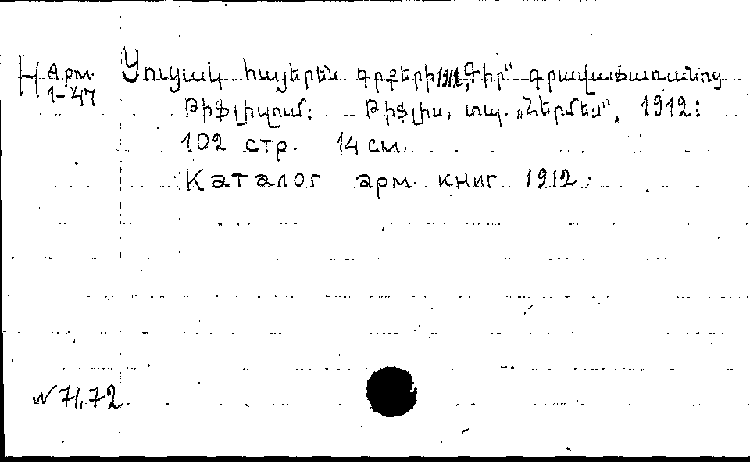 H Арм. Ցուցակ հայերեն գրքերի 1912 „Գիր“ գրավաճառանոց
1-47 Թիֆլիզում: Թիֆլիս, տպ. „Հերմես“, 1912:
102 стр. 14 см.
Каталог арм. книг 1912.
N 71,72.